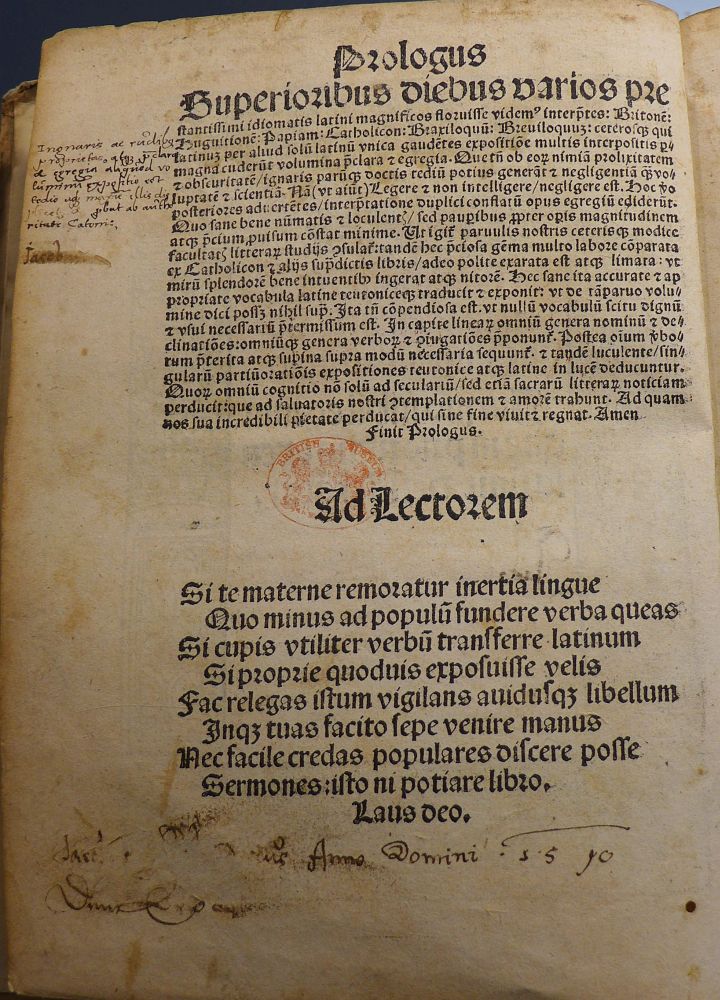 Prologus
Superioribus diebus varios pre
stantissimi idiomatis latini magnificos floruisse videmꝰ interp̄tes: Britonē:
Huguitionē: Papiam: Catholicon: Braxiloquū: Breuiloquuz: ceterosqꝫ qui
latinuz per aliud solū latinū vnica gaudētes expositiōe multis interpositis
magna cuderūt volumina p̄clara ⁊ egregia. Que tñ ob eoꝝ nimiā prolixitatem
⁊ obscuritatē/ignaris paruqꝫ doctis tediū potius generāt ⁊ negligentiā
luptatē ⁊ scientiā. Nā (vt aiūt) Legere ⁊ non intelligere/negligere est. Hoc
posteriores aduertētes/interp̄tatione duplici conflatū opus egregiū ediderūt.
Quo sane bene nūmatis ⁊ loculentꝭ/sed pauꝑibus ꝓpter oꝑis magnitudinem
atqꝫ p̄cium/puisum cōstat minime. Ut igit᷑ paruulis nostris ceterisqꝫ modice
facultatꝭ/litteraꝝ studijs ꝯsulat᷑: tandē hec p̄ciosa gēma multo labore cōparata
ex Catholicon ⁊ alijs sup̄dictis libris/adeo polite exarata est atqꝫ limata: vt
mirū splendorē bene intuentibꝰ ingerat atqꝫ nitorē. Hec sane ita accurate ⁊ ap
propriate vocabula latine teutoniceqꝫ traducit ⁊ exponit: vt de tā paruo volu
mine dici possꝫ nihil sup̄. Ita tñ cōpendiosa est. vt nullū vocabulū scitu dignū
⁊ vsui necessariū p̄termissum est. In capite lineaꝝ omniū genera nominū ⁊ de⸗
clinatiōes: omniūqꝫ genera verboꝝ ⁊ ꝯiugatiōes p̄ponunt᷑. Postea oīum ꝟbo⸗
rum p̄terita atqꝫ supina supra modū necessaria sequunt᷑. ⁊ tandē luculente/sin⸗
gularū partiū oratiōis expositiones teutonice atqꝫ latine in lucē deducuntur.
Quoꝝ omniū cognitio nō solū ad seculariū/sed etiā sacrarū litteraꝝ noticiam
perducit: que ad saluatoris nostri ꝯtemplationem ⁊ amorē trahunt. Ad quam
nos sua incredibili pietate perducat/qui sine fine viuit ⁊ regnat. Amen
Finit Prologus.
BRITISH MUSEUM
Ad Lectorem
Si te materne remoratur inertia lingue
Quo minus ad populū fundere verba queas
Si cupis vtiliter verbū transferre latinum
Si proprie quoduis exposuisse velis
Fac relegas istum vigilans auidusqꝫ libellum
Inqꝫ tuas facito sepe venire manus
Nec facile credas populares discere posse
Sermones: isto ni potiare libro.
Laus deo.
Anno Domini 1510